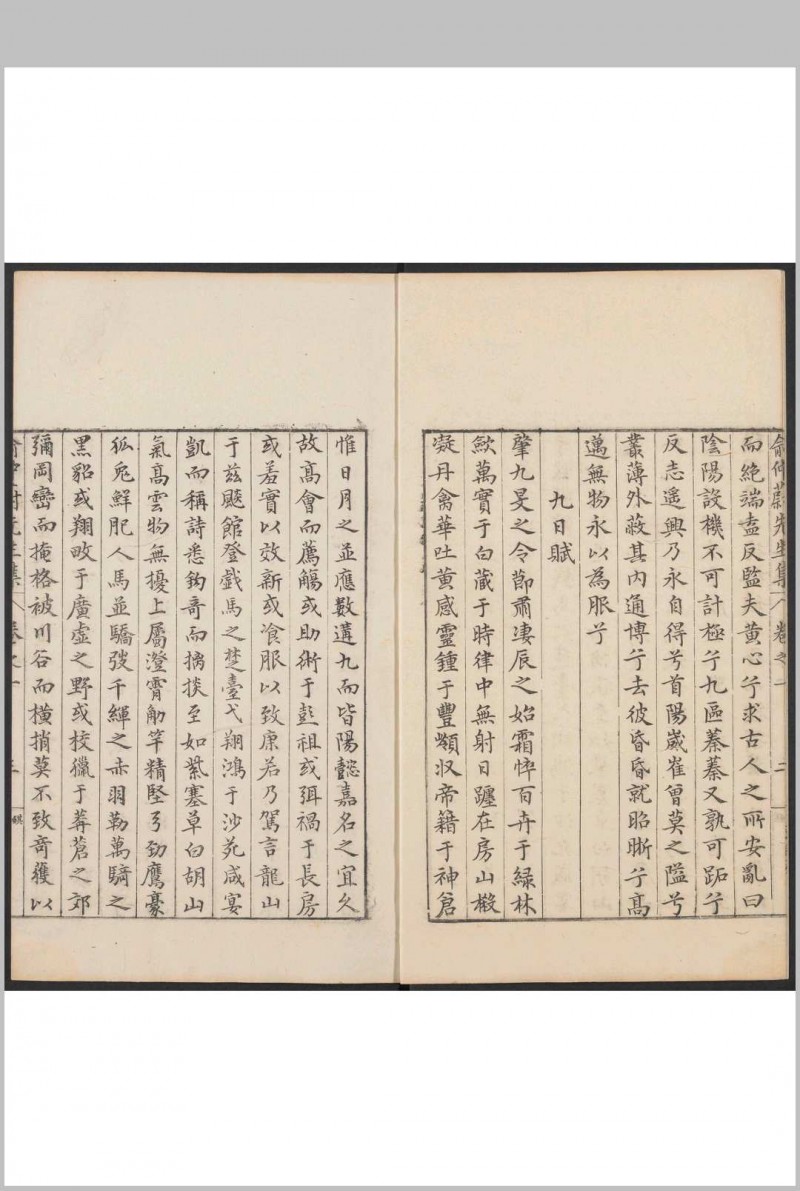 俞仲蔚先生集 卷之一 二
而絶端盍反監夫黄心兮求古人之所安亂曰
陰陽設機不可計極兮九區蓁蓁又孰可跖兮
反志遥興乃永自得兮首陽崴崔曾莫之隘兮
叢薄外蔽其内通博兮去彼昏昏就昭晰兮髙
邁無物永以為服兮
九日賦
肇九旻之令節肅凄辰之始霜悴百卉于緑林
歛萬實于白藏于時律中無射日躔在房山椒
凝丹禽華吐黄感靈鍾于豐頫収帝籍于神倉
惟日月之並應數遘九而皆陽懿嘉名之宜久
故髙會而薦觴或助術于彭祖或弭禍于長房
或羞實以效新或飡服以致康若乃駕言龍山
于兹颷館登戲馬之楚臺弋翔鴻于沙苑咸宴
凱而稱詩悉鈎奇而摛掞至如紫塞草白胡山
氣髙雲物無擾上屬澄霄觔竿精堅弓劲鷹豪
狐兎鮮肥人馬並驕弢千緷之赤羽勒萬騎之
黒貂或翔畋于廣虚之野或校獵于莽蒼之郊
彌岡巒而掩格被川谷而横捎莫不致竒獲以